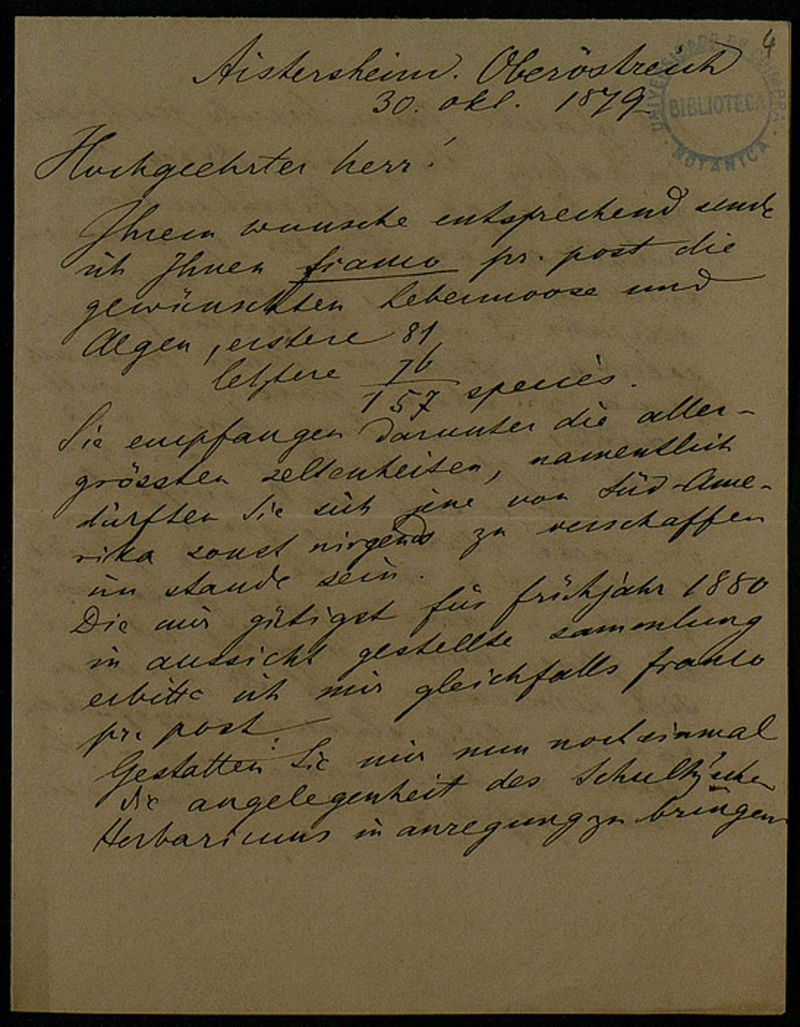 4
UNIVERSIDADE DE COIMBRA
BIBLIOTECA
BOTANICA
Aistersheim. Oberöstreich
30. okt. 1879
Hochgeehrter herr!
Ihrem wunsche entsprechend sende
ich Ihnen franco pr. post die
gewünschten lebermoose und
Algen, erstere 81
letztere 76
157 species.
Sie empfangen darunter die aller-
grössten seltenheiten, namentlich
dürften Sie sich jene von Süd-Ame-
rika sonst nirgends zu verschaffen
im stande sein.
Die mir gütigst für frühjahr 1880
in aussicht gestellte sammlung
erbitte ich mir gleichfalls franco
pr. post.
Gestatten Sie mir nun noch einmal
die angelegenheit des Schultz'schen
Herbariums in anregung zu bringen